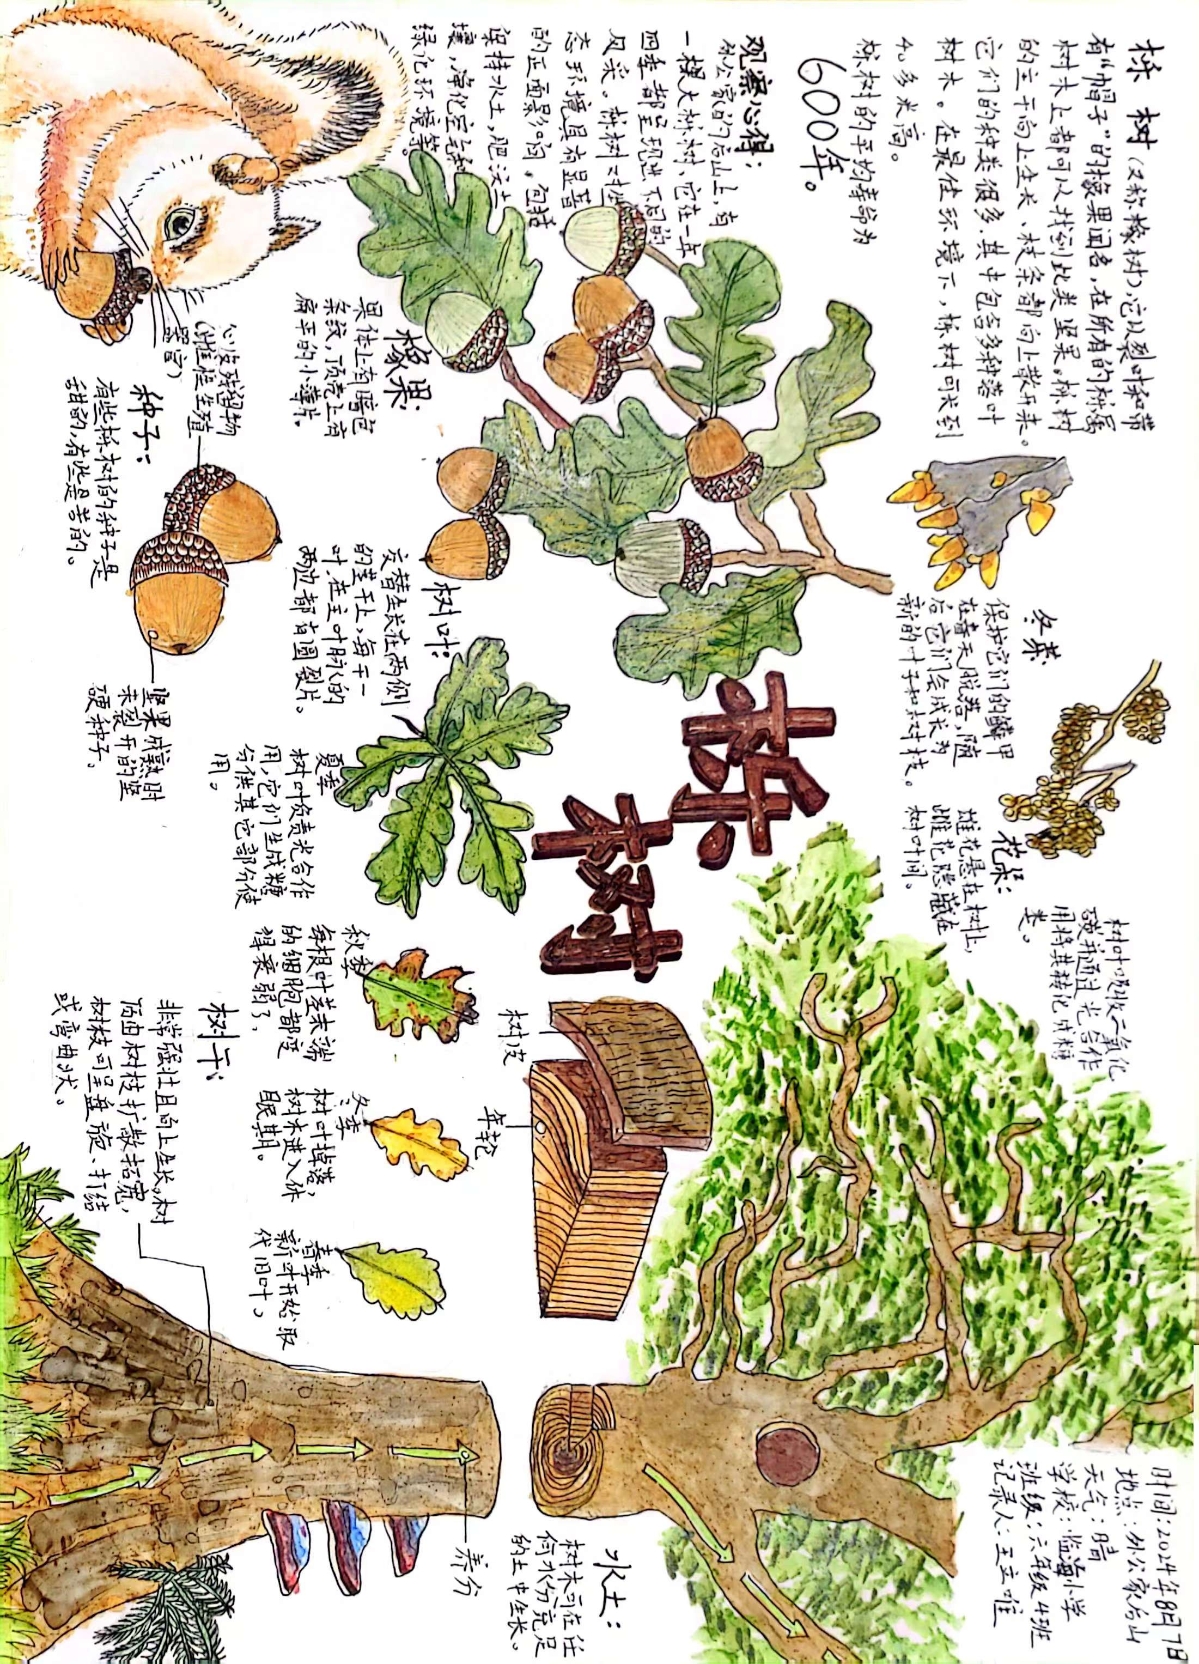 栎 树(又称橡树),它以裂叶和带
有“帽子”的橡果闻名,在所有的栎属
树木上都可以找到此类坚果。栎树
的主干向上生长,枝条都向上散开来。
它们的种类很多,其中包含多种落叶
树木。在最佳环境下,栎树可长到
40多米高。
栎树的平均寿命为
600年。
观察心得:
外公家的后山上,有
一棵大栎树,它在一年
四季都呈现出不同的
风采。栎树对生
态环境具有显著
的正面影响,包括
保持水土,肥沃土
壤,净化空气和
绿化环境等。
冬芽
保护它们的鳞甲
在春天脱落,随
后它们会成长为
新的叶子和树枝。
花朵:
雄花悬在树上,
雌花隐藏在
树叶间。
树叶吸收二氧化
碳并通过光合作
用将其转化成糖
类。
时间:2024年8月7日
地点:外公家后山
天气:晴
学校:临海小学
班级:六年级4班
记录人:王立唯
栎树
橡果:
果体上有暗色
条纹,顶壳上有
扁平的小薄片。
树叶:
交替生长在两侧
的茎干上,每千一
叶,在主叶脉的
两边都有圆裂片。
心皮残留物
(雌性生殖
器官)
种子:
有些栎树的种子是
甜的,有些是苦的。
坚果成熟时
未裂开的坚
硬种子。
夏季
树叶负责光合作
用,它们生成糖
分供其它部分使
用。
秋季
每根叶茎末端
的细胞都变
得衰弱了。
冬季
树叶掉落,
树木进入休
眠期。
春季
新叶开始取
代旧叶。
树皮
年轮
树干:
非常强壮且向上生长,树
冠由树枝扩散招宽,
树枝可呈盘旋、打结
或弯曲状。
养分
水土:
树木可在任
何水份充足
的土中生长。